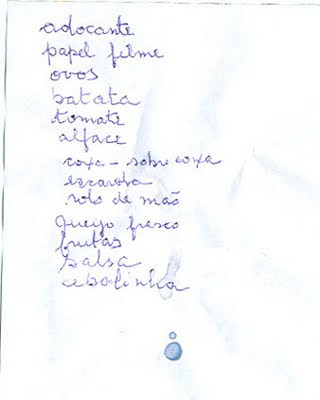 adocante
papel filme
ovos
batata
tomate
alface
coxa - sobre coxa
escarola
rolo de mão
queijo fresco
frutas
salsa
cebolinha